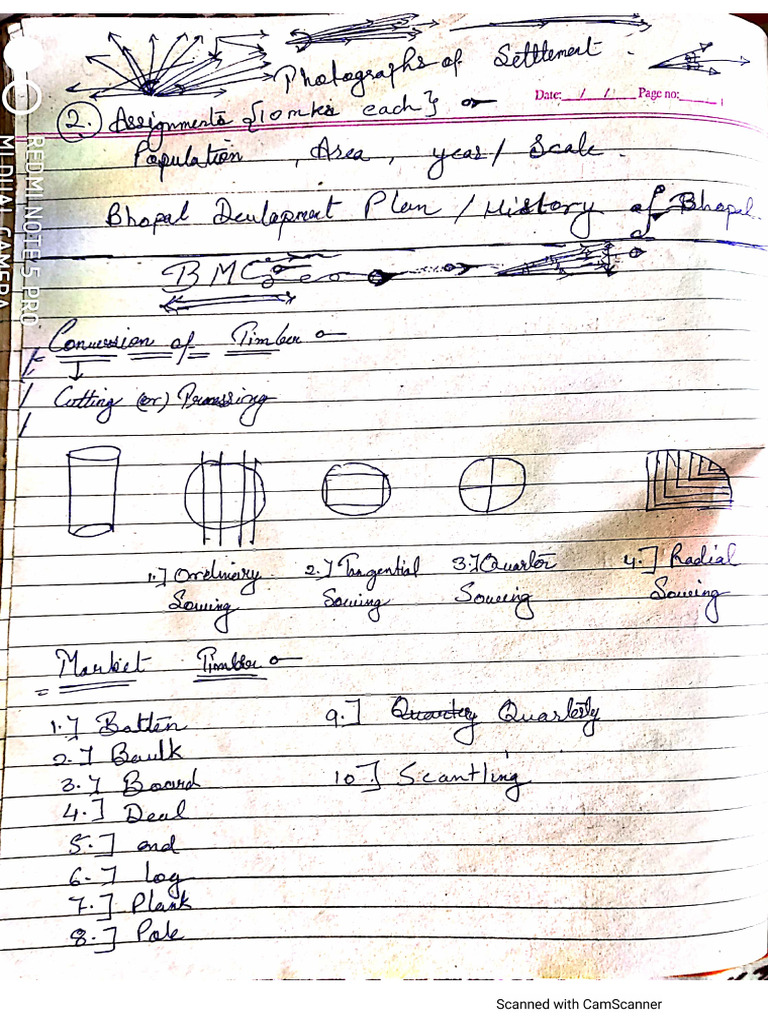 Photographs of Settlement
Date: / / Page no:
2. Assignments {10 mks each}
Population, Area, year / Scale.
Bhopal Devlapment Plan / History of Bhopal
BMC
Conversion of Timber
Cutting (or) Processing
1.] Ordinary 2.] Tangential 3.] Quarter 4.] Radial
Sowing Sowing Sowing Sowing
Market Timber
1.] Batten 9.] Quarterly
2.] Baulk
3.] Board 10] Scantling
4.] Deal
5.] end
6.] log
7.] Plank
8.] Pole
REDMI NOTE 5 PRO
MI DUAL CAMERA
Scanned with CamScanner